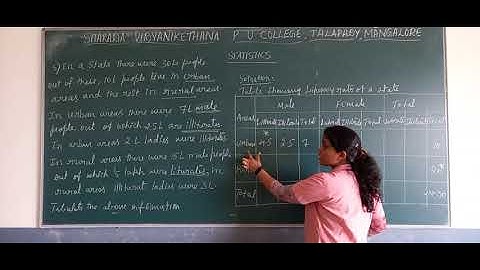 "SHARADA" VIDYANIKETHANA P U COLLEGE, TALAPADY, MANGALORE
STATISTICS
5) In a State there were 30L people
out of these, 10L people live in urban
areas and the rest in rural areas
In urban areas there were 7L male
people, out of which 2.5L are illiterates
In urban areas 2L ladies were illiterates
In rural areas there were 5L male people
out of which ½ lakh were literates. In
rural areas illiterate ladies were
Tabulate the above information
Solution:
Table showing literacy rate of a state
Areas Male Female Total
Total Total
Urban 4.5 2.5 7 10
20
Total 30